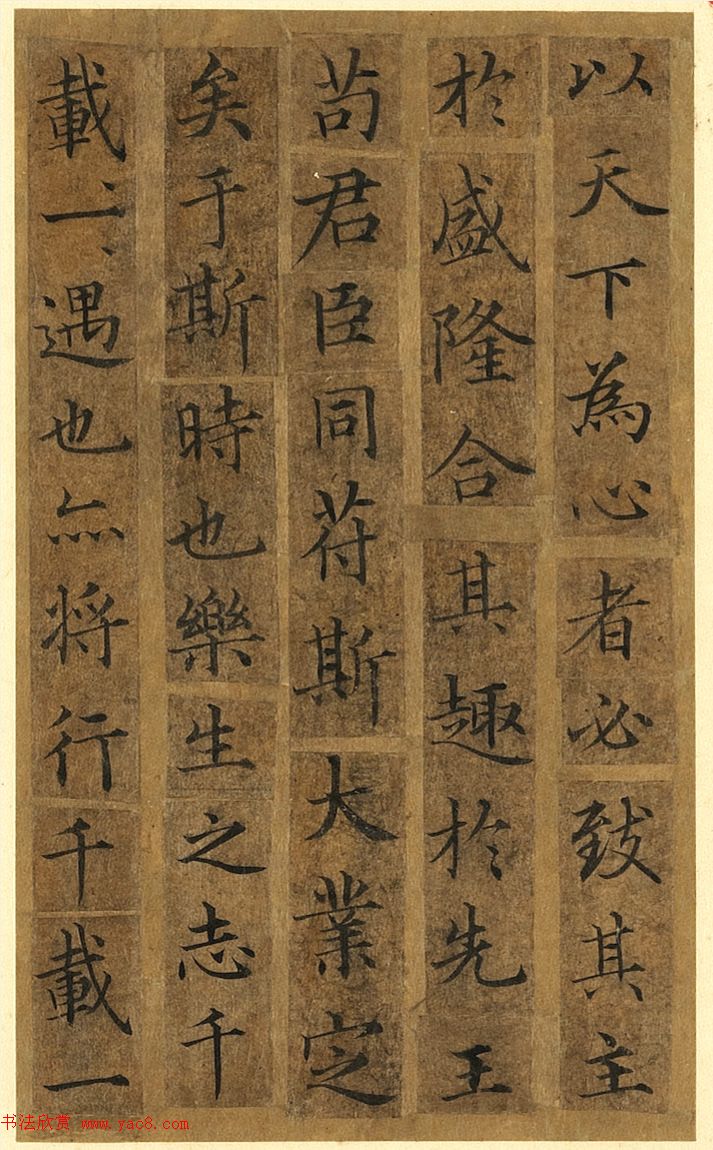 以天下為心者必致其主
於盛隆合其趣於先王
苟君臣同苻斯大業定
矣于斯時也樂生之志千
載一遇也亦将行千載一
书法欣赏 www.yac8.com